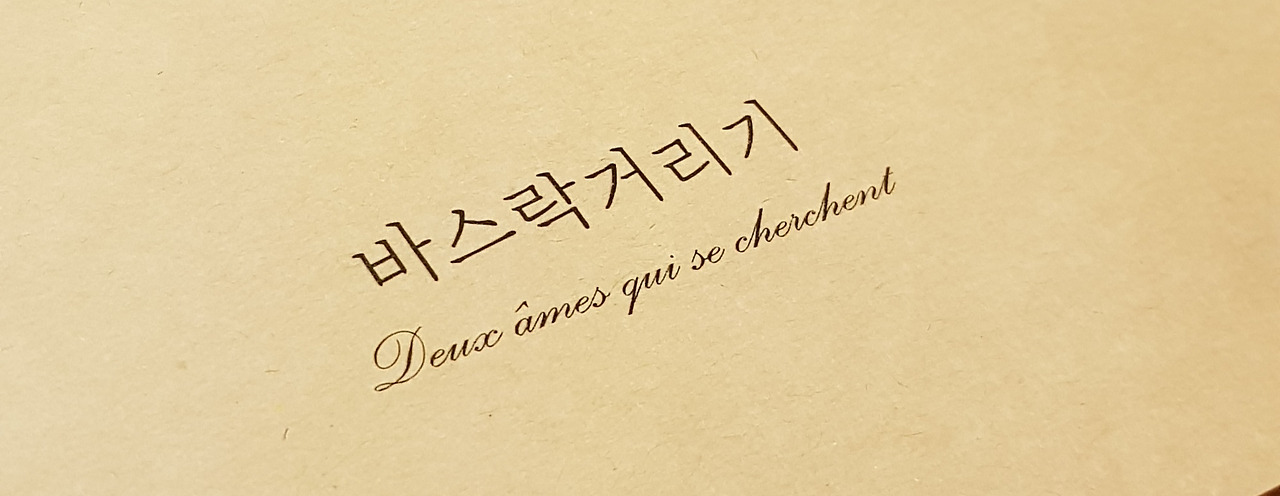 바스락거리기
Deux âmes qui se cherchent